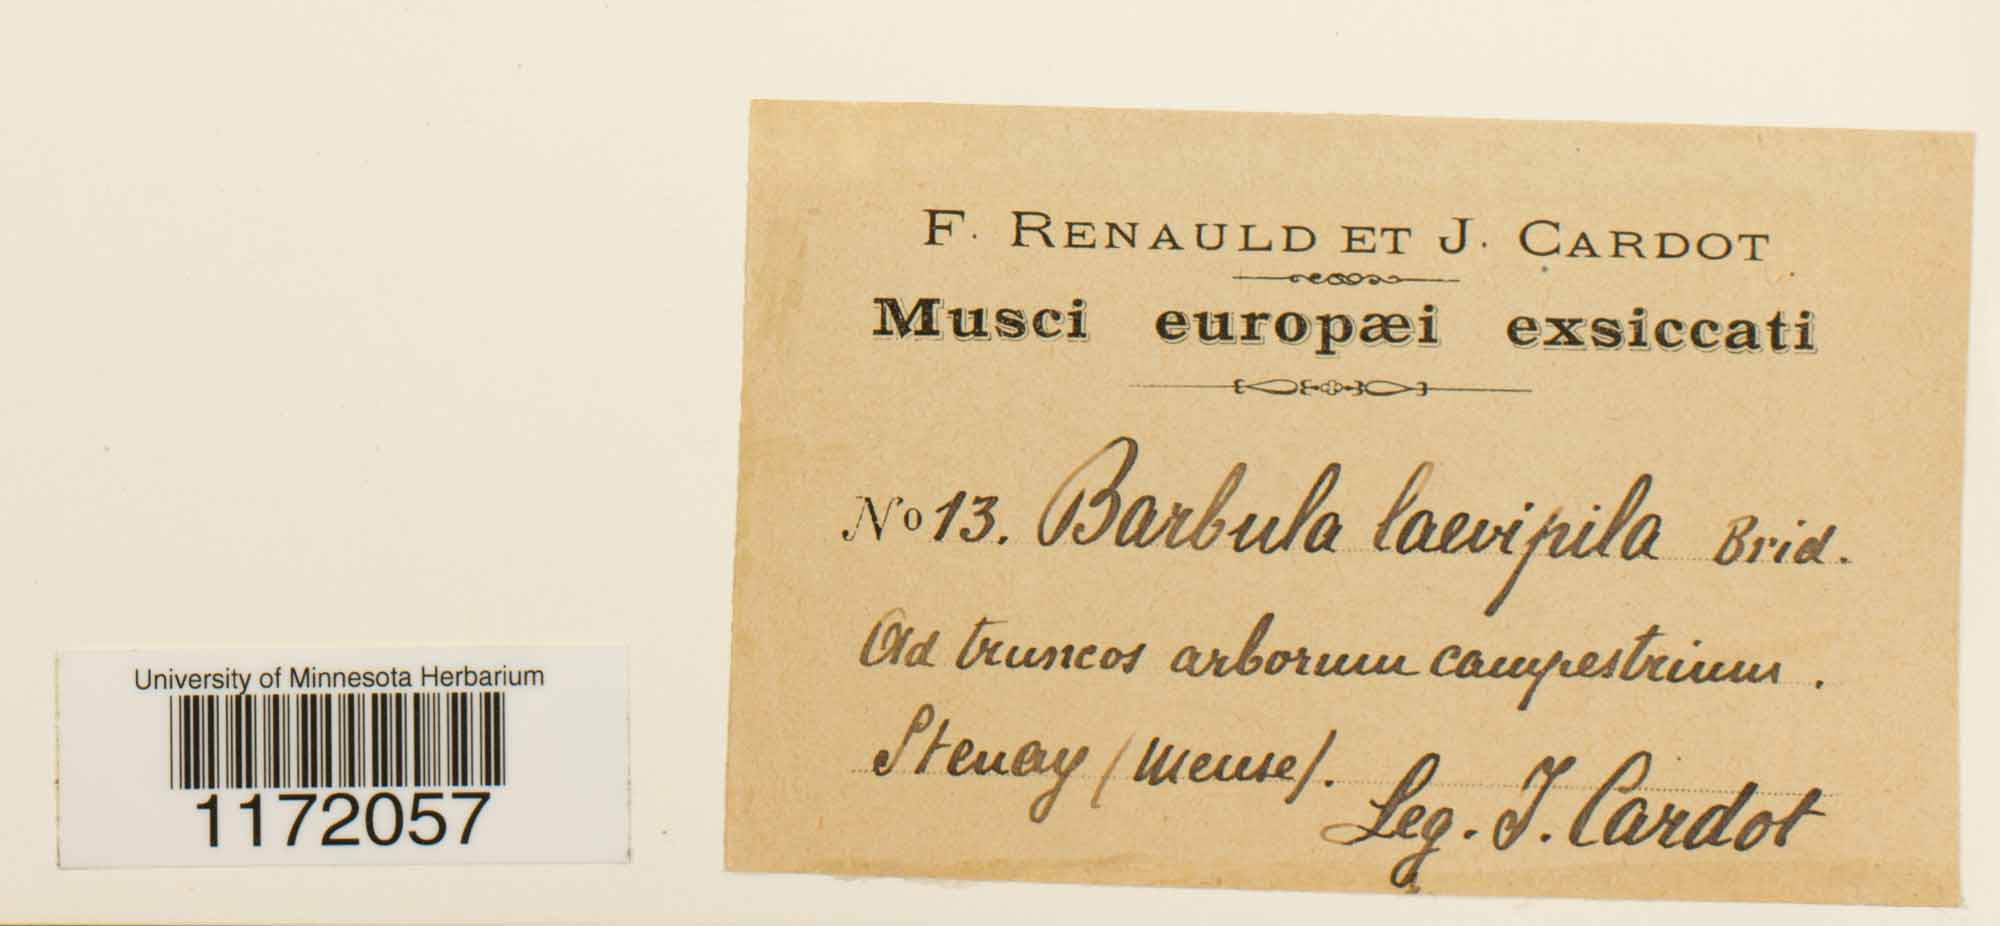 F. RENAULD ET J. CARDOT
Musci europæi exsiccati
No 13. Barbula laevipila Brid.
Ad truncos arborum campestrium.
Stenay (Meuse).
Leg. J. Cardot
University of Minnesota Herbarium
1172057